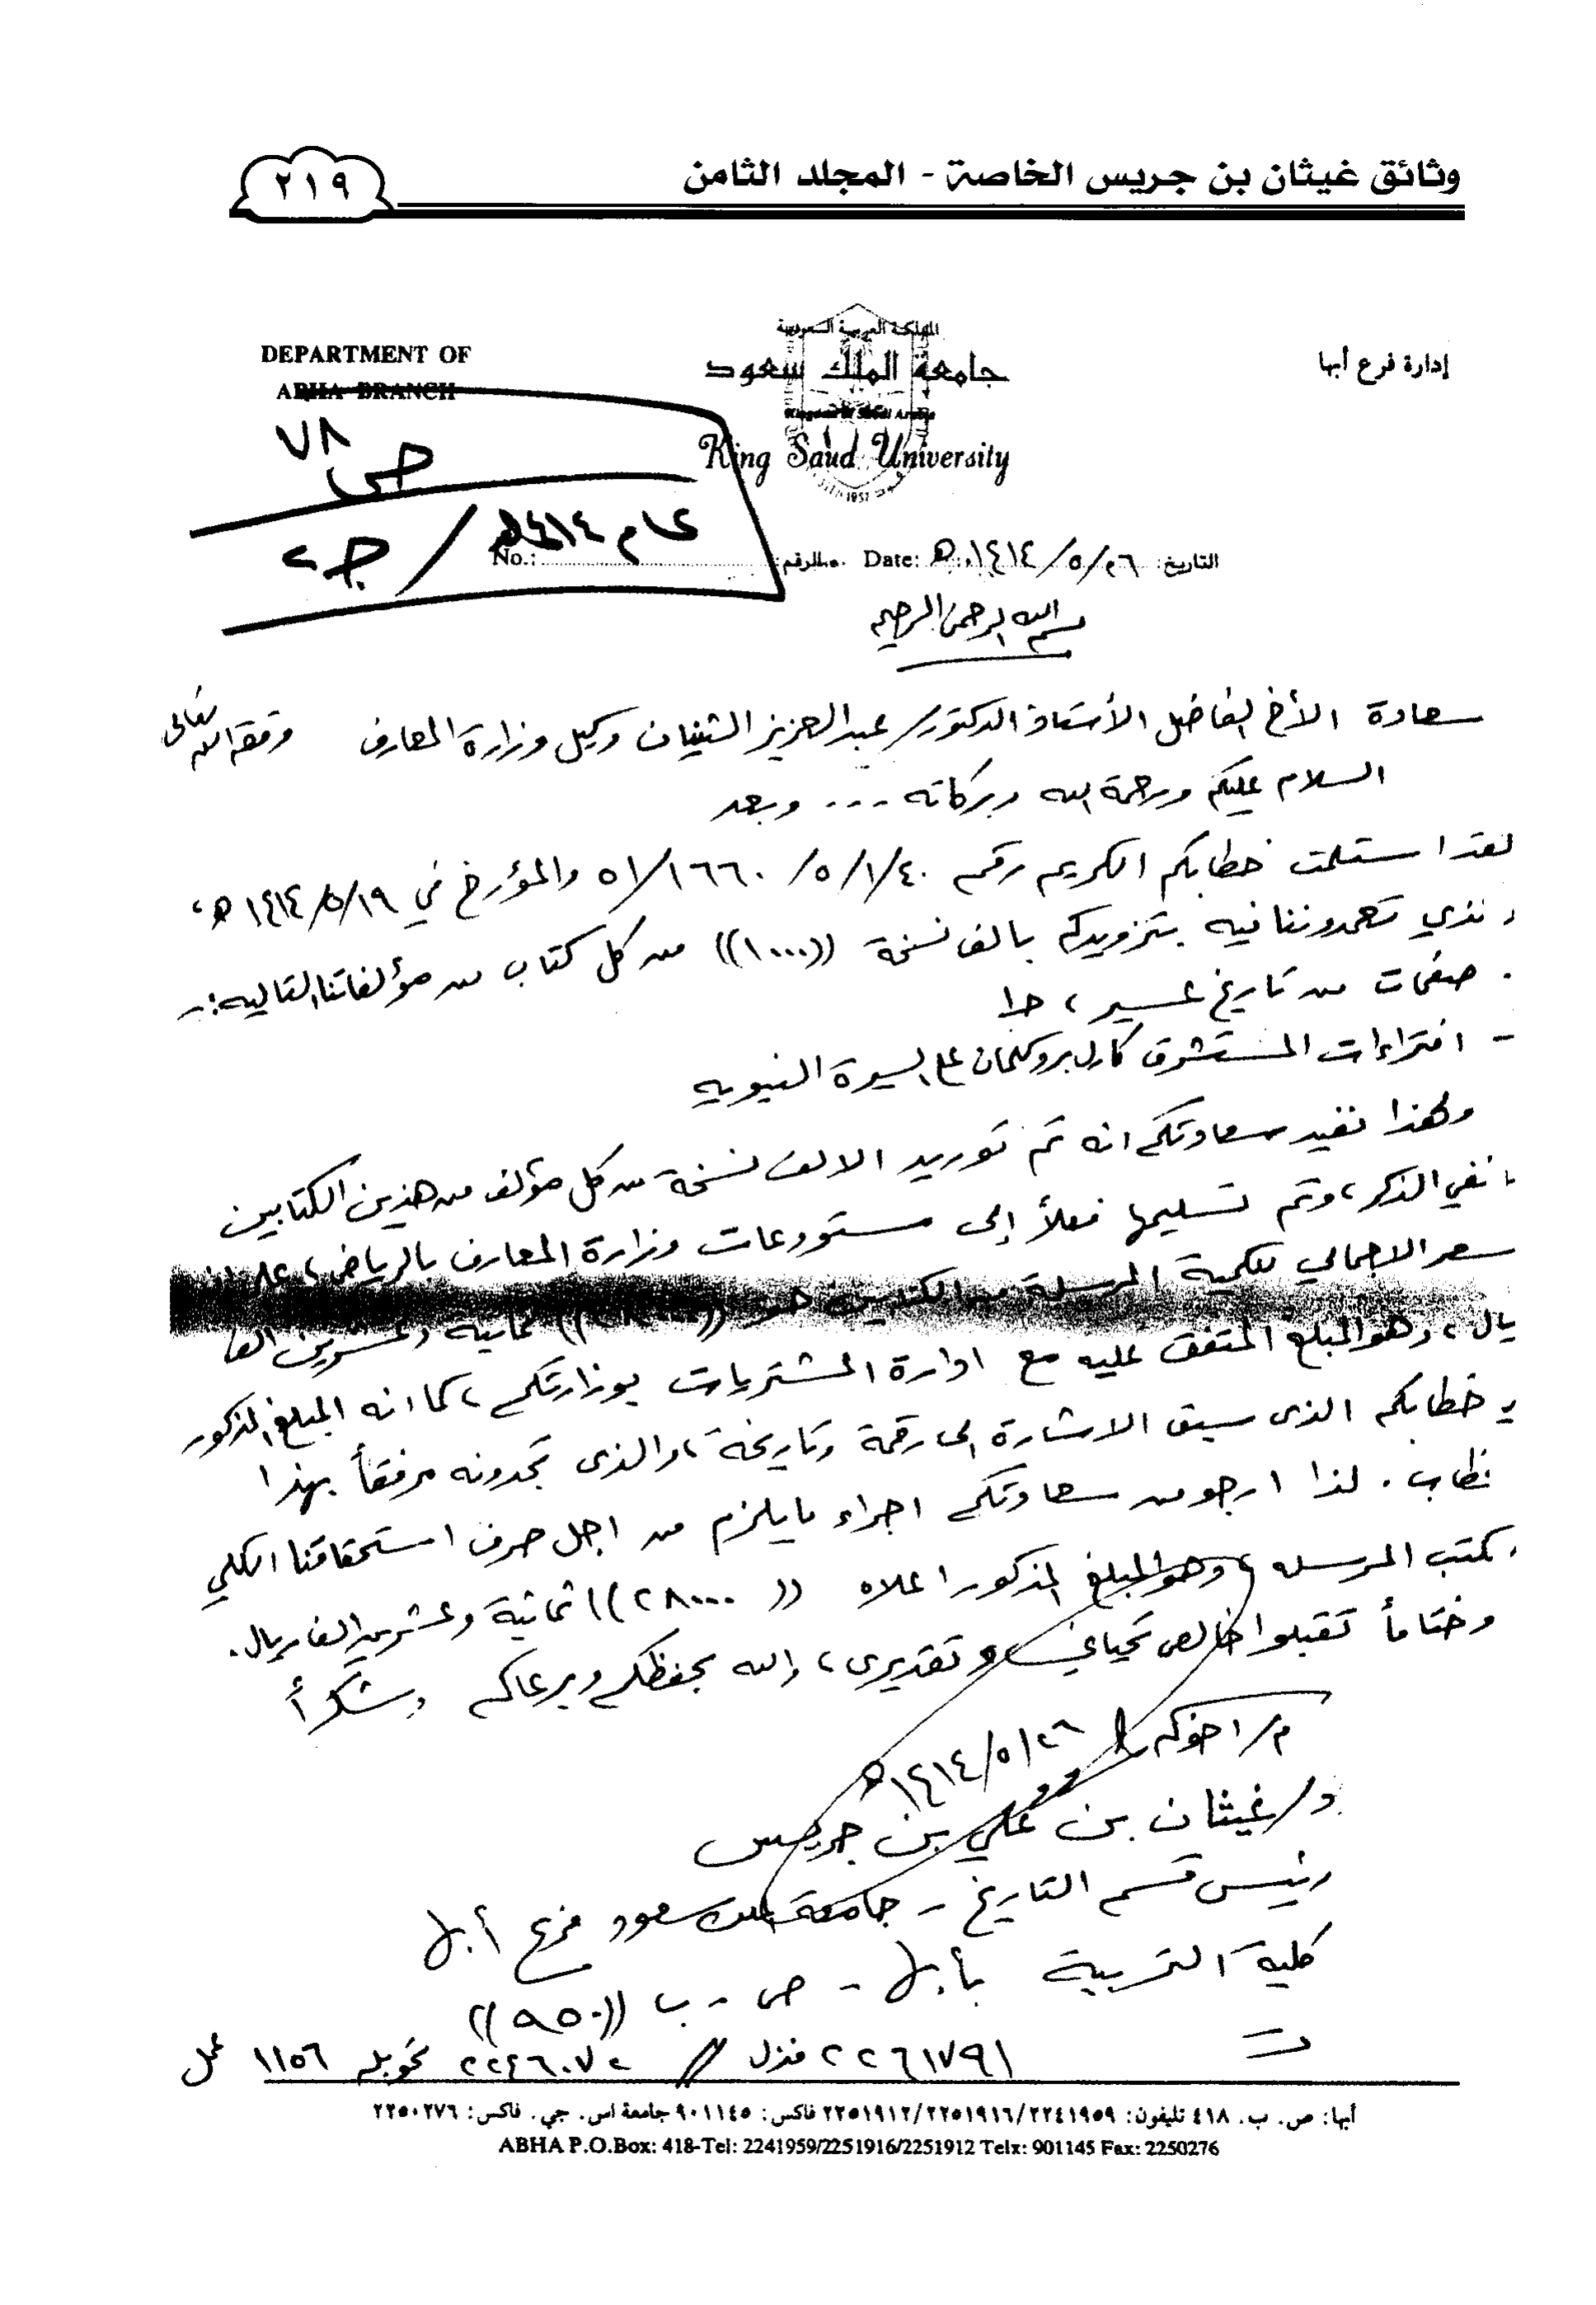 وثائق غيثان بن جريس الخاصة - المجلد الثامن
٢١٩
إدارة فرع أبها
المملكة العربية السعودية
جامعة الملك سعود
Kingdom of Saudi Arabia
King Saud University
1957
DEPARTMENT OF
ABHA BRANCH
ص ٧٨
عام ١٤١٤هـ / جـ٢
التاريخ: ٢٦/٥/١٤١٤هـ Date: الرقم: No.:
بسم الله الرحمن الرحيم
سعادة الأخ الفاضل الأستاذ الدكتور/ عبدالعزيز الثنيان وكيل وزارة المعارف وفقه الله تعالى
السلام عليكم ورحمة الله وبركاته ... وبعد
لقد استلمت خطابكم الكريم رقم ٤٠/١/٥/ ٥١/١٦٦٠ والمؤرخ في ١٩/٥/١٤١٤هـ،
نذي تعمدوننا فيه بتزويدكم بالف نسخة ((١٠٠٠)) من كل كتاب من مؤلفاتنا التاليه:-
. صفحات من تاريخ عسير، ج١
- افتراءات المستشرق كارل بروكلمان على السيرة النبويه
ولهذا نفيد سعادتكم انه تم توريد الالف نسخة من كل مؤلف من هذين الكتابين
نفي الذكر، وتم تسليمها فعلاً إلى مستودعات وزارة المعارف بالرياض، علما ان
سعر الاجمالي للكمية المرسلة من الكتابين هو ثمانية وعشرين الف
يال، وهو المبلغ المتفق عليه مع ادارة المشتريات بوزارتكم، كما انه المبلغ المذكور
خطابكم الذى سبق الاشارة الى رقمة وتاريخة، والذى تجدونه مرفقاً بهذا
نطاب. لذا ارجو من سعادتكم اجراء مايلزم من اجل صرف استحقاقنا الكلي
كتب المرسله، وهو المبلغ المذكور اعلاه ((٢٨٠٠٠)) ثمانية وعشرين الف ريال.
وختاماً تقبلوا خالص تحياتي وتقديرى، والله يحفظكم ويرعاكم وشكراً
م/ اخوكم ٢٦/٥/١٤١٤هـ
د/ غيثان بن علي بن جريس
رئيس قسم التاريخ - جامعة الملك سعود فرع أبها
كلية التربية بأبها - ص . ب ((٩٥٠))
ت ٢٢٦١٧٩١ منزل // ٢٢٤٦٠٧٢ تحويله ١١٥٦ عمل
أبها: ص. ب. ٤١٨ تليفون: ٢٢٤١٩٥٩/٢٢٥١٩١٦/٢٢٥١٩١٢ فاكس: ٩٠١١٤٥ جامعة اس. جي. فاكس: ٢٢٥٠٢٧٦
ABHA P.O.Box: 418-Tel: 2241959/2251916/2251912 Telx: 901145 Fax: 2250276